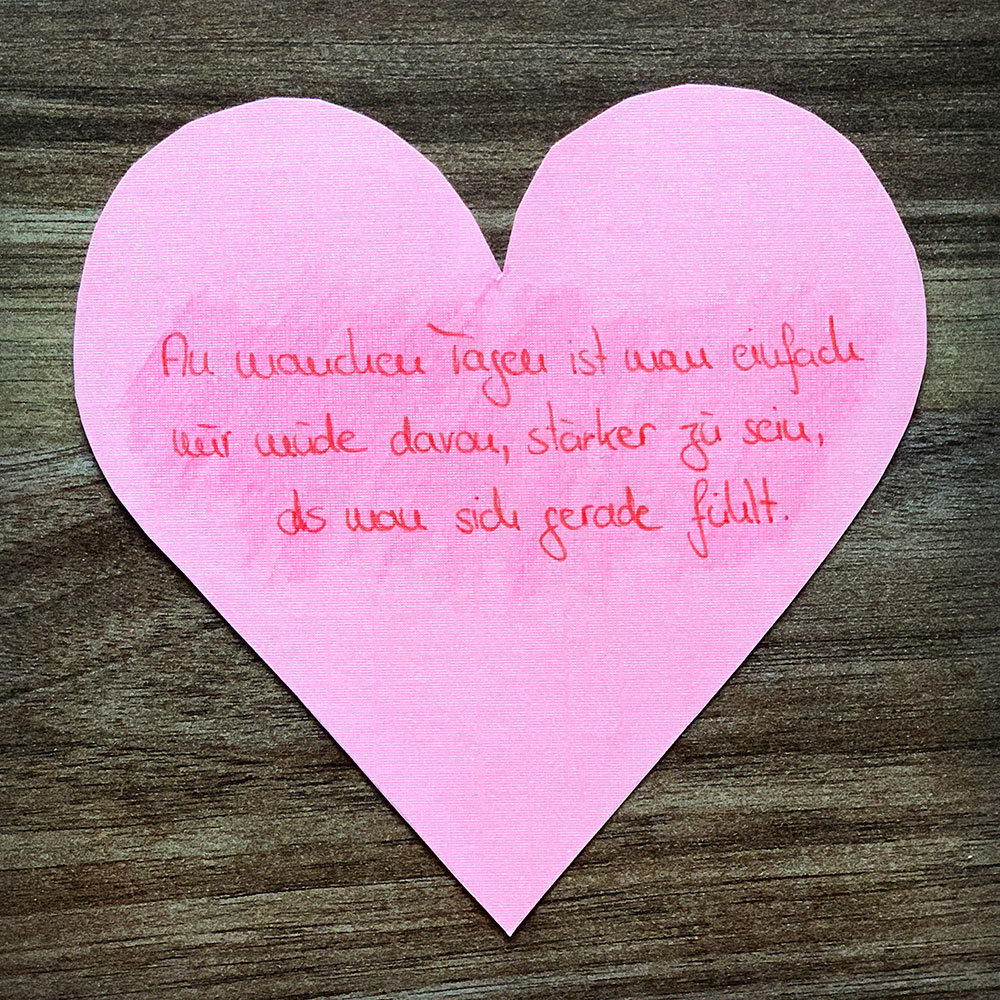 An manchen Tagen ist man einfach
nur müde davon, stärker zu sein,
als man sich gerade fühlt.